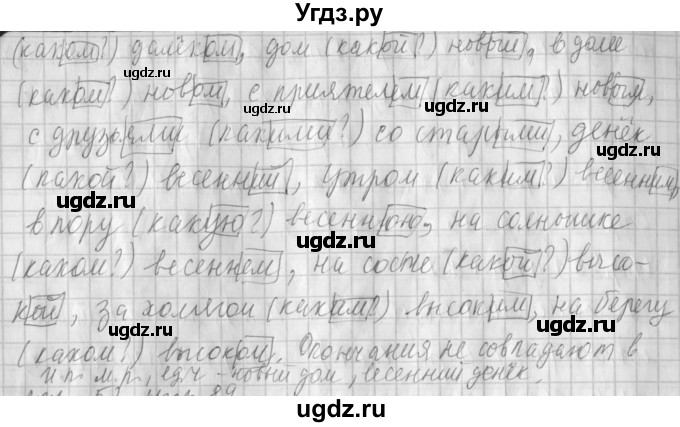 Угдз.ру
(каком?) далёком, дом (какой?) новый, в доме
(каком?) новом, с приятелем (каким?) новым,
с друзьями (какими?) со старыми, денёк
(какой?) весенний, утром (каким?) весенним,
в пору (какую?) весеннюю, на солнышке
(каком?) весеннем, на сосне (какой?) высо-
кой, за холмом (каким?) высоким, на берегу
(каком?) высоком. Окончания не совпадают в
и.п. м.р., ед.ч - новый дом, весенний денёк.
ugdz.ru
ugdz.ru
ugdz.ru
ugdz.ru
ugdz.ru
ugdz.ru
ugdz.ru
ugdz.ru
ugdz.ru
ugdz.ru
ugdz.ru
ugdz.ru